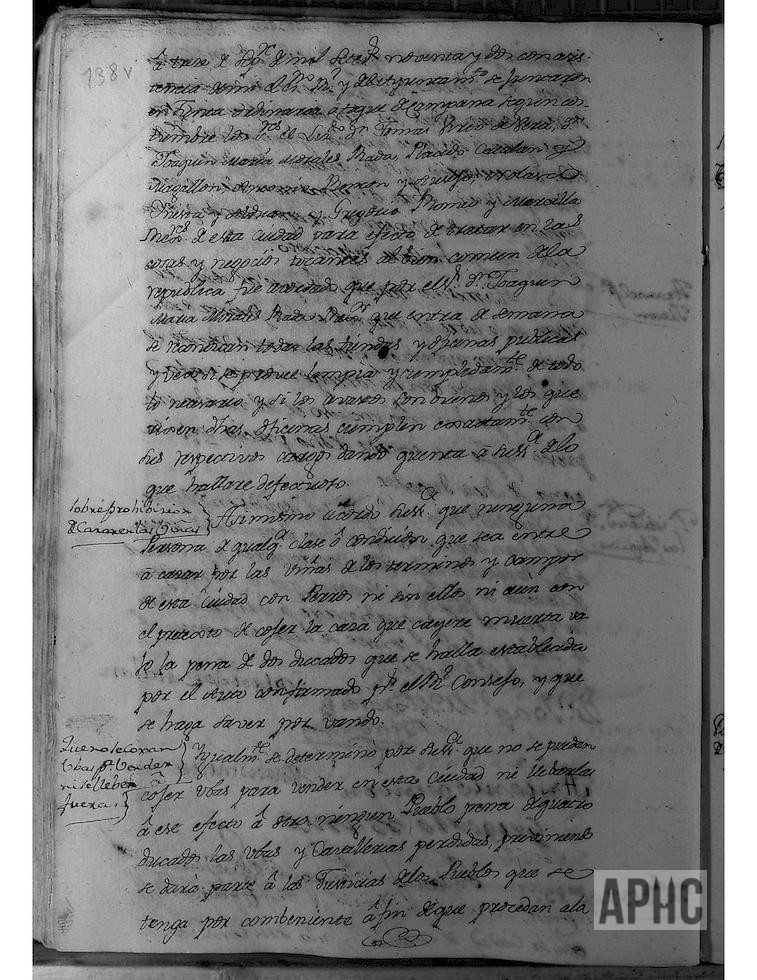 138v
â trece de Sep.e de mil setec.s noventa y dos con asis-
tencia de mi el Es.no R.l y del Ayuntam.to se juntaron
en Junta ordinaria â toque de Campana segun cos-
tumbre los S.res el Lic.do D.n Tomas Perez de Vera, D.n
Joaquin Maria Morales Rada, Placido Catalan y
Magallon, Antonio Roman y
y Gregorio Romeo y Marcilla
de esta ciudad para efecto de tratar en las
cosas y negocios tocantes al bien comun de la
republica fue acordado que por el S.r D.n Joaquin
Maria Morales Rada que entra de semana
se reconozcan todas las tiendas y oficinas publicas
y vea si se provee limpia y cumplidam.te de todo
lo necesario, y si los avastos son buenos y los que
sirven d̃has oficinas cumplen exactam.te con
sus respectivos cargos dando quenta â Sus S.a de lo
que hallare defectuoso.
Sobre prohibicion
de Cazar en las Viñas
Asimismo acordó Sus S.a que ninguna
Persona de qualq.a clase ô condicion que sea entre
â cazar por las viñas de los terminos y Campos
de esta Ciudad con Perros ni sin ellos ni aun con
el pretexto de coser la caza que cayere muerta va
jo la pena de dos ducados que se halla establecida
por el confirmado p.r el R.l Consejo, y que
se haga saver por vando.
Que no se cojan
Ubas p.a Vender
ni se lleben
fuera.
Ygualm.te se determinó por Sus S.a que no se puedan
coser Ubas para vender en esta Ciudad ni llebarlas
â ese efecto â otro ningun Pueblo pena de quatro
ducados las Ubas y Cavallerias perdidas,
se dara parte â las Justicias de los Pueblos que se
tenga por combeniente â fin de que procedan a la
APHC